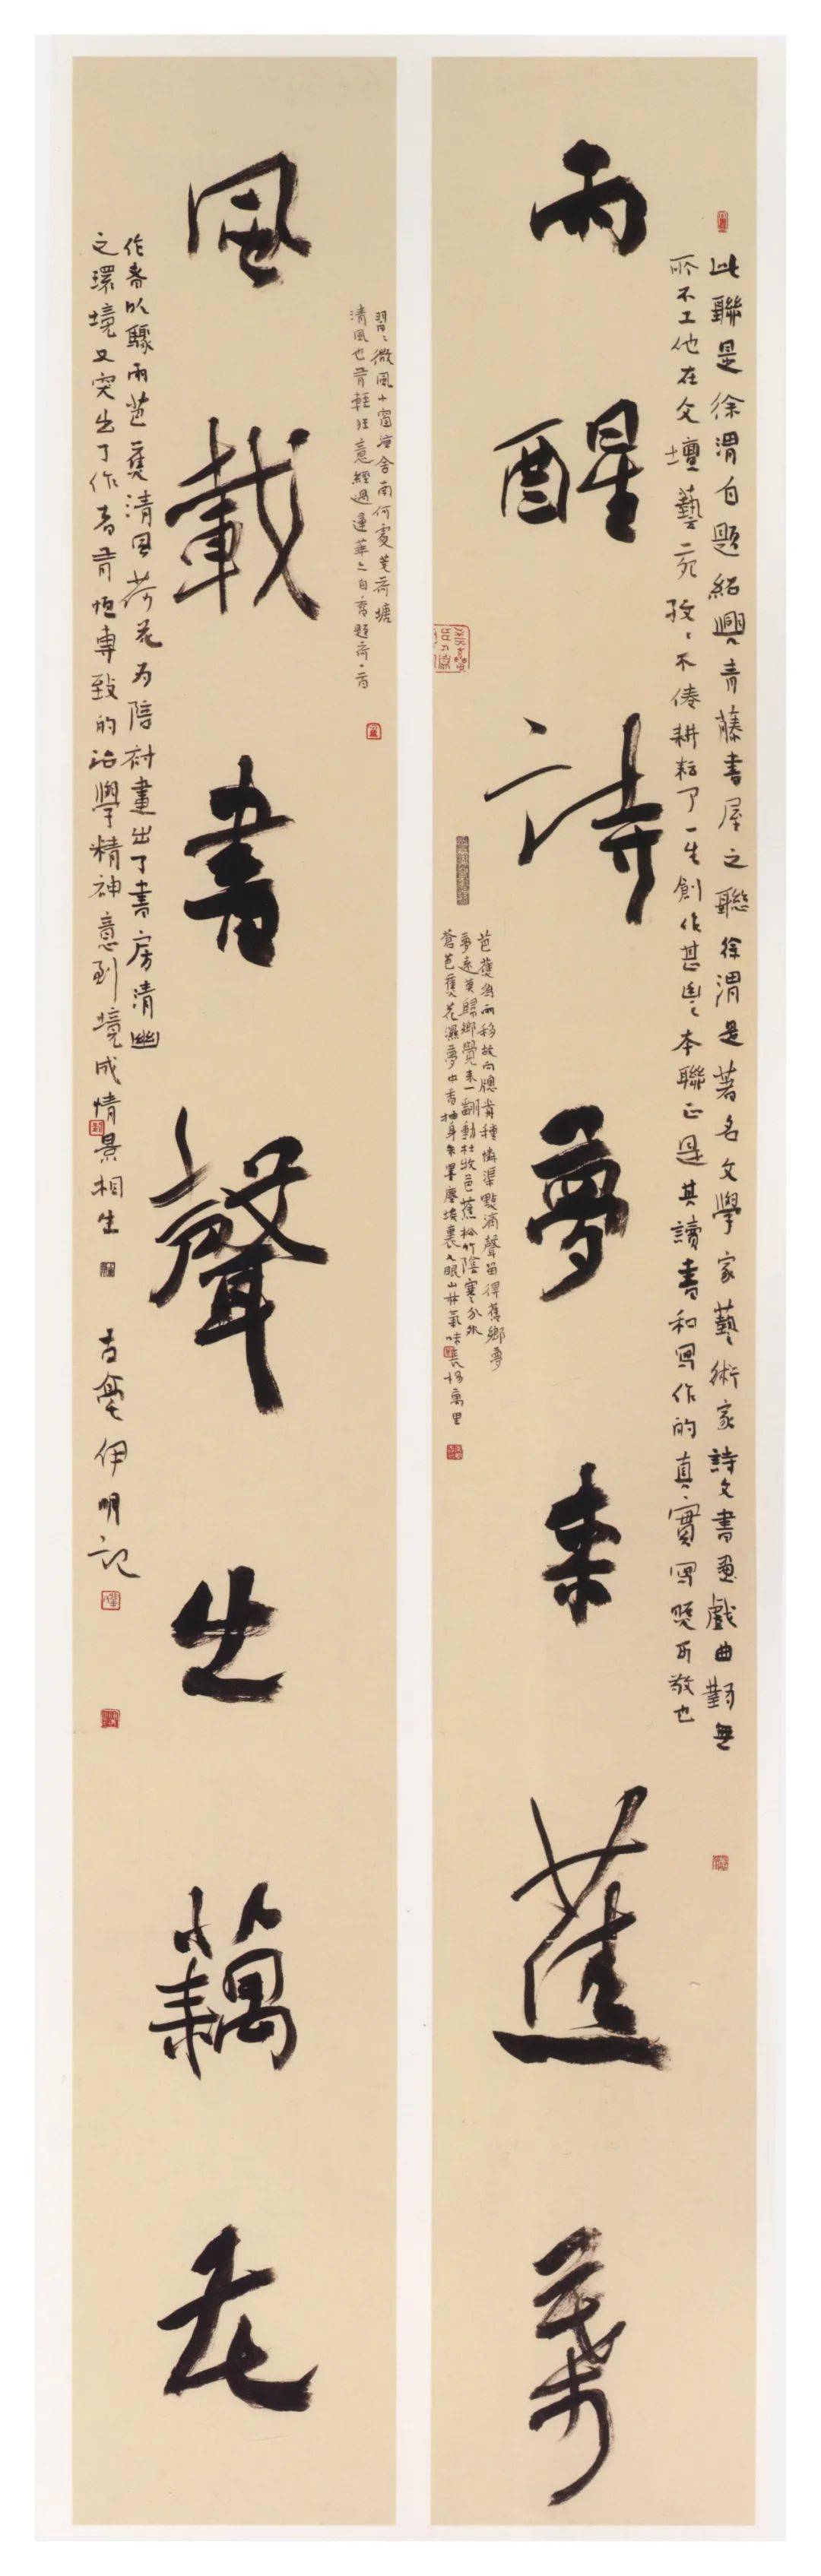 雨醒詩夢来蕉葉
風載書聲出藕花
此聯是徐渭自題紹興青藤書屋之聯徐渭是著名文學家藝術家詩文書畫戲曲對無
所不工他在文壇藝苑孜孜不倦耕耘了一生創作甚豐本聯正是其讀書和寫作的真實寫照可敬也
芭蕉為雨移故向牕前種憐渠點滴聲留得舊鄉夢
夢遠莫歸鄉覺来一翻動杜牧芭蕉松竹陰寒分外
蒼芭蕉花濕夢中香抽身朱墨塵埃裏入眠山林氣味長楊萬里
習習微風小窗
清風也有輕狂意經過蓮華
作者以驟雨芭蕉清風荷花為陪衬畫出了書房清幽
之環境又突出了作者有恒專致的治學精神意到境成情景相生
伊明記